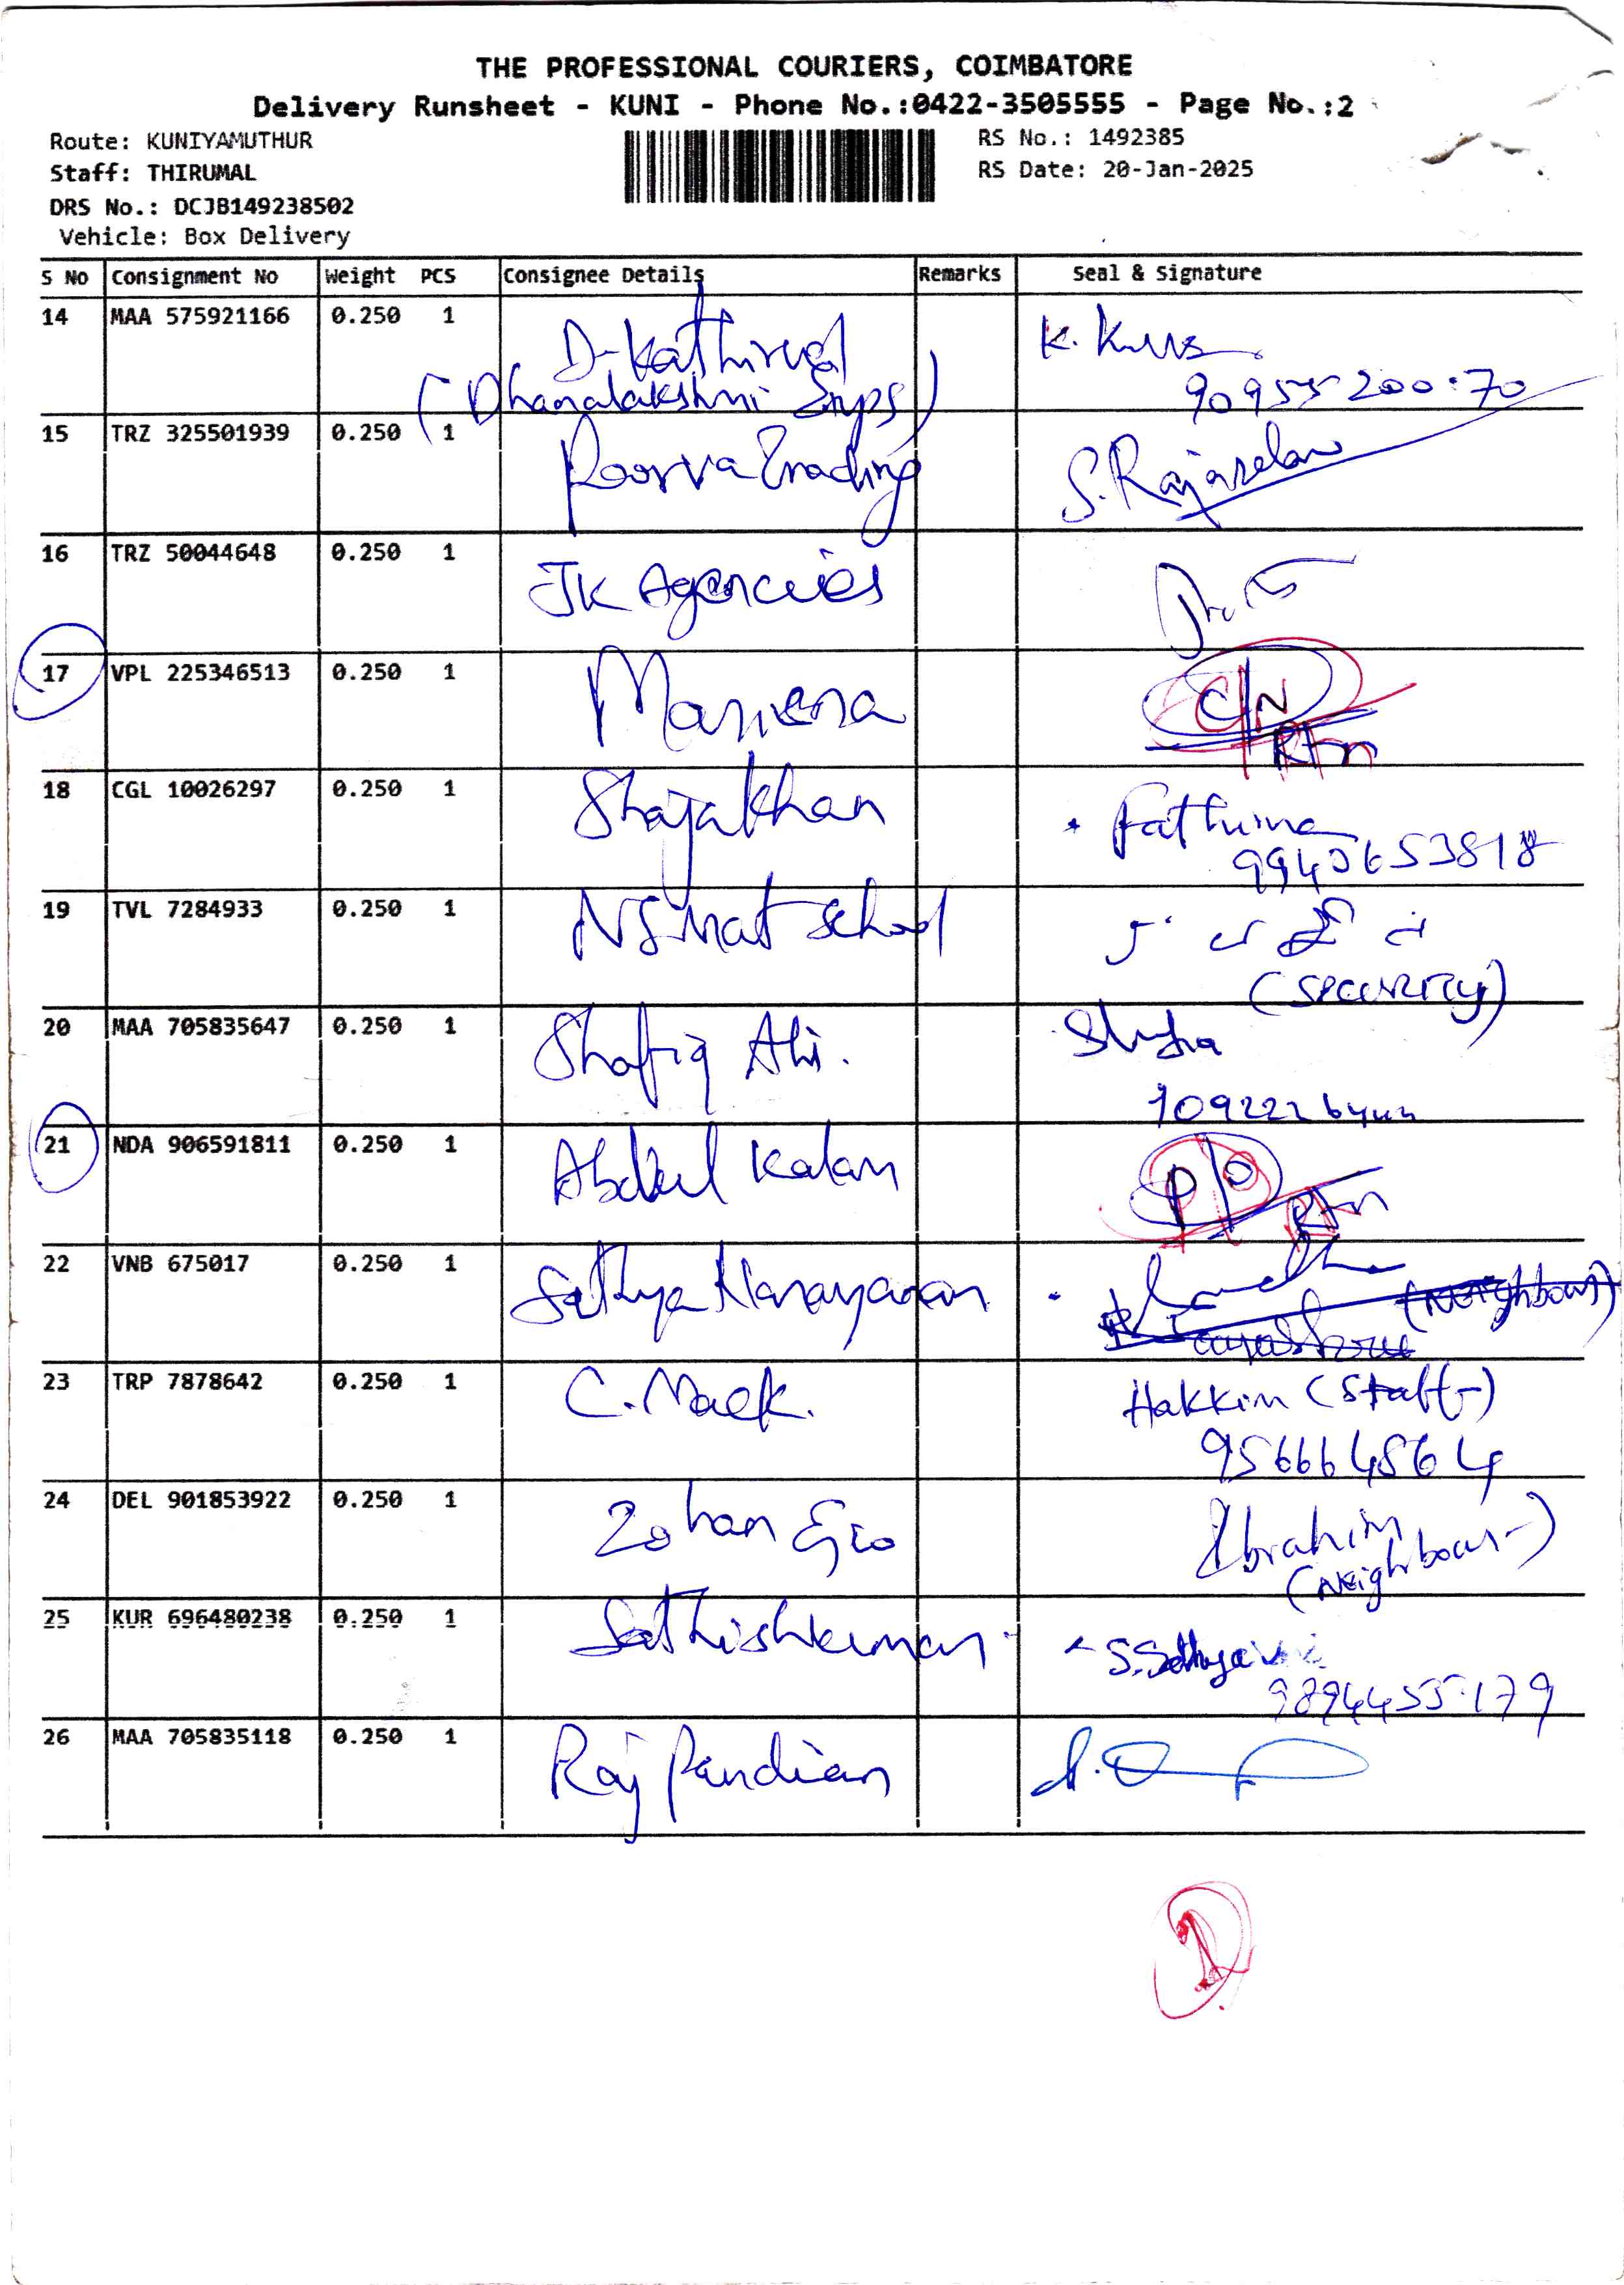 THE PROFESSIONAL COURIERS, COIMBATORE
Delivery Runsheet - KUNI - Phone No.:0422-3505555 - Page No.:2
Route: KUNIYAMUTHUR
RS No.: 1492385
Staff: THIRUMAL
RS Date: 20-Jan-2025
DRS No.: DCJB149238502
Vehicle: Box Delivery
S No Consignment No Weight PCS Consignee Details Remarks Seal & Signature
14 MAA 575921166 0.250 1 D. Kathirvel K.
(Dhanalakshmi 90955 200 70
15 TRZ 325501939 0.250 1 Poorva Trading S. Rajaselan
16 TRZ 50044648 0.250 1 JK Agencies
17 VPL 225346513 0.250 1 C/N
Rtn
18 CGL 10026297 0.250 1 Shajakhan Fathima
9940653818
19 TVL 7284933 0.250 1 NS Mat School
(Security)
20 MAA 705835647 0.250 1 Shafiq Ali.
21 NDA 906591811 0.250 1 Abdul Kalam P/O
Rtn
22 VNB 675017 0.250 1 Sathya Narayanan (Neighbour)
23 TRP 7878642 0.250 1 C. Hakkim (Staff)
9566648564
24 DEL 901853922 0.250 1 Zohan Ibrahim
(Neighbour)
25 KUR 696480238 0.250 1 Sathishkumar S.
9894455179
26 MAA 705835118 0.250 1 Raj Pandian